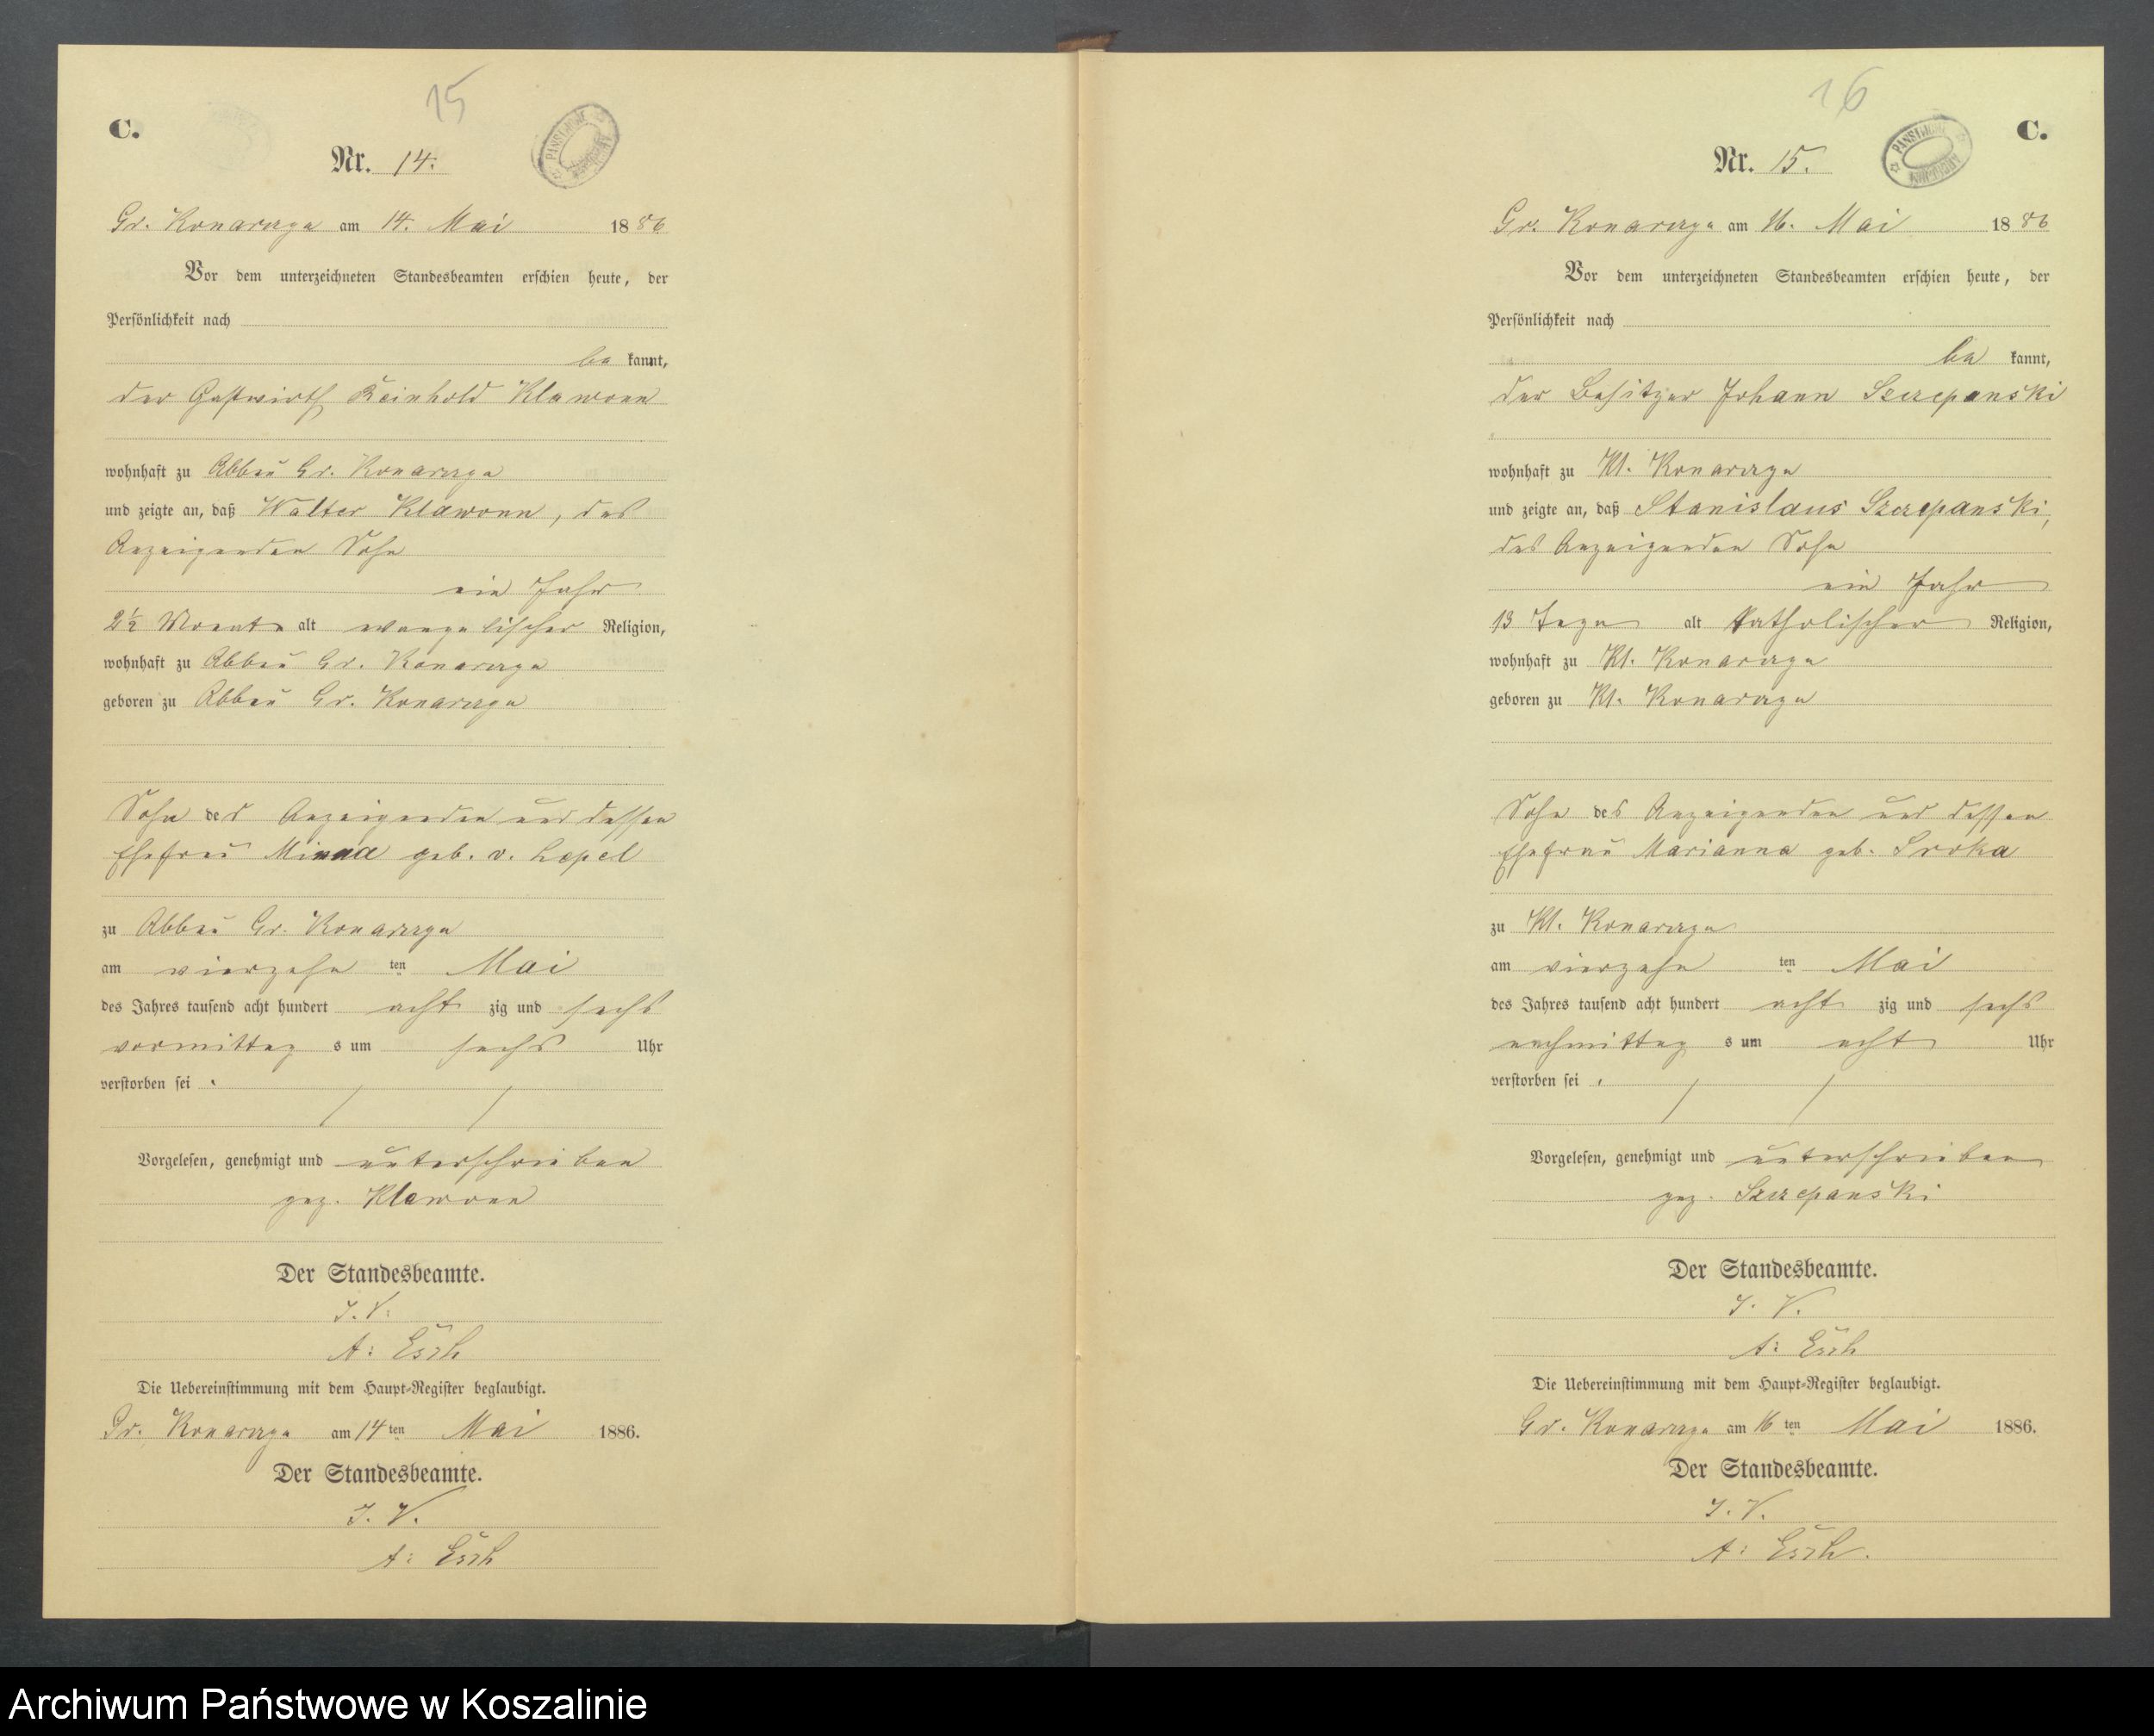 15
C.
Nr. 14.
PANSTWOWE ARCHIWUM
Gr. Konarczyn am 14. Mai 1886
Vor dem unterzeichneten Standesbeamten erschien heute, der
Persönlichkeit nach
be kannt,
der Gastwirth Reinhold Klawonn
wohnhaft zu Abbau Gr. Konarczyn
und zeigte an, daß Walter Klawonn, des
Anzeigenden Sohn
ein Jahr
2½ Monate alt evangelischer Religion,
wohnhaft zu Abbau Gr. Konarczyn
geboren zu Abbau Gr. Konarczyn
Sohn des Anzeigenden und dessen
Ehefrau Minna geb. v. Lepel
zu Abbau Gr. Konarczyn
am vierzehn ten Mai
des Jahres tausend acht hundert acht zig und sechs
vormittag s um sechs Uhr
verstorben sei.
Vorgelesen, genehmigt und unterschrieben
gez. Klawonn
Der Standesbeamte.
I. V.
A: Esch
Die Uebereinstimmung mit dem Haupt-Register beglaubigt.
Gr. Konarczyn am 14 ten Mai 1886.
Der Standesbeamte.
I. V.
A: Esch
16
C.
Nr. 15.
PANSTWOWE ARCHIWUM
Gr. Konarczyn am 16. Mai 1886
Vor dem unterzeichneten Standesbeamten erschien heute, der
Persönlichkeit nach
be kannt,
der Besitzer Johann Szczepanski
wohnhaft zu Kl. Konarczyn
und zeigte an, daß Stanislaus Szczepanski,
des Anzeigenden Sohn
ein Jahr
13 Tage alt katholischer Religion,
wohnhaft zu Kl. Konarczyn
geboren zu Kl. Konarczyn
Sohn des Anzeigenden und dessen
Ehefrau Marianna geb. Sroka
zu Kl. Konarczyn
am vierzehn ten Mai
des Jahres tausend acht hundert acht zig und sechs
nachmittag s um acht Uhr
verstorben sei.
Vorgelesen, genehmigt und unterschrieben
gez. Szczepanski
Der Standesbeamte.
I. V.
A: Esch
Die Uebereinstimmung mit dem Haupt-Register beglaubigt.
Gr. Konarczyn am 16 ten Mai 1886.
Der Standesbeamte.
I. V.
A: Esch.
Archiwum Państwowe w Koszalinie